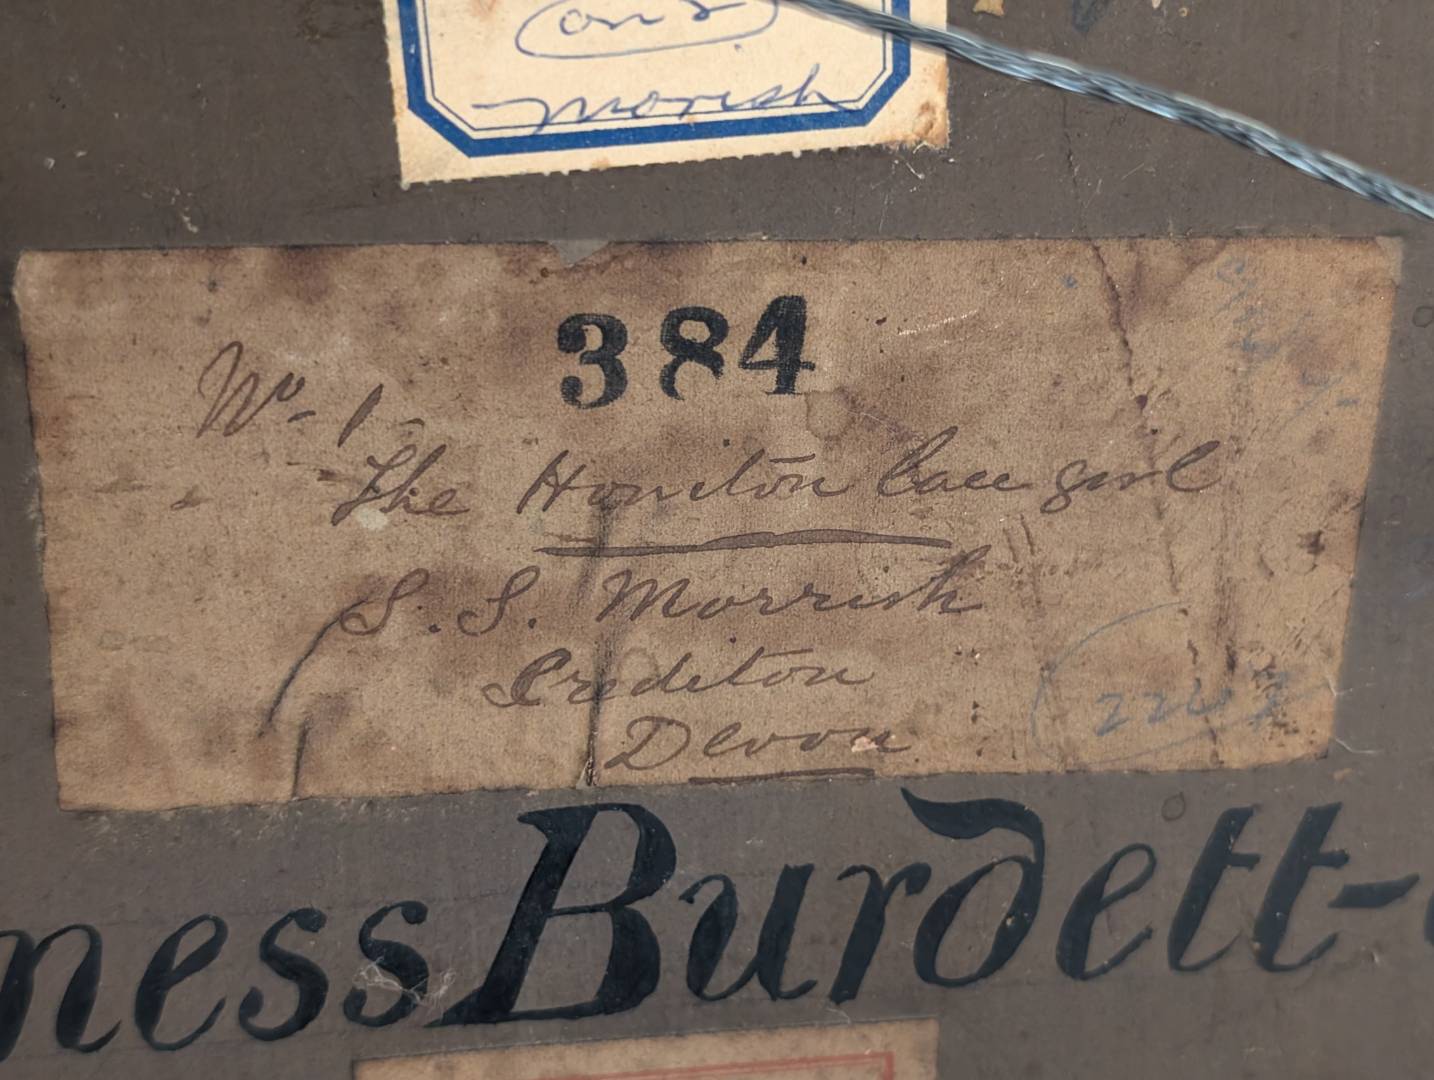 Morish
384
No. 1-
The Honiton lace girl
S. S. Morrish
Crediton
Devon
ness Burdett-